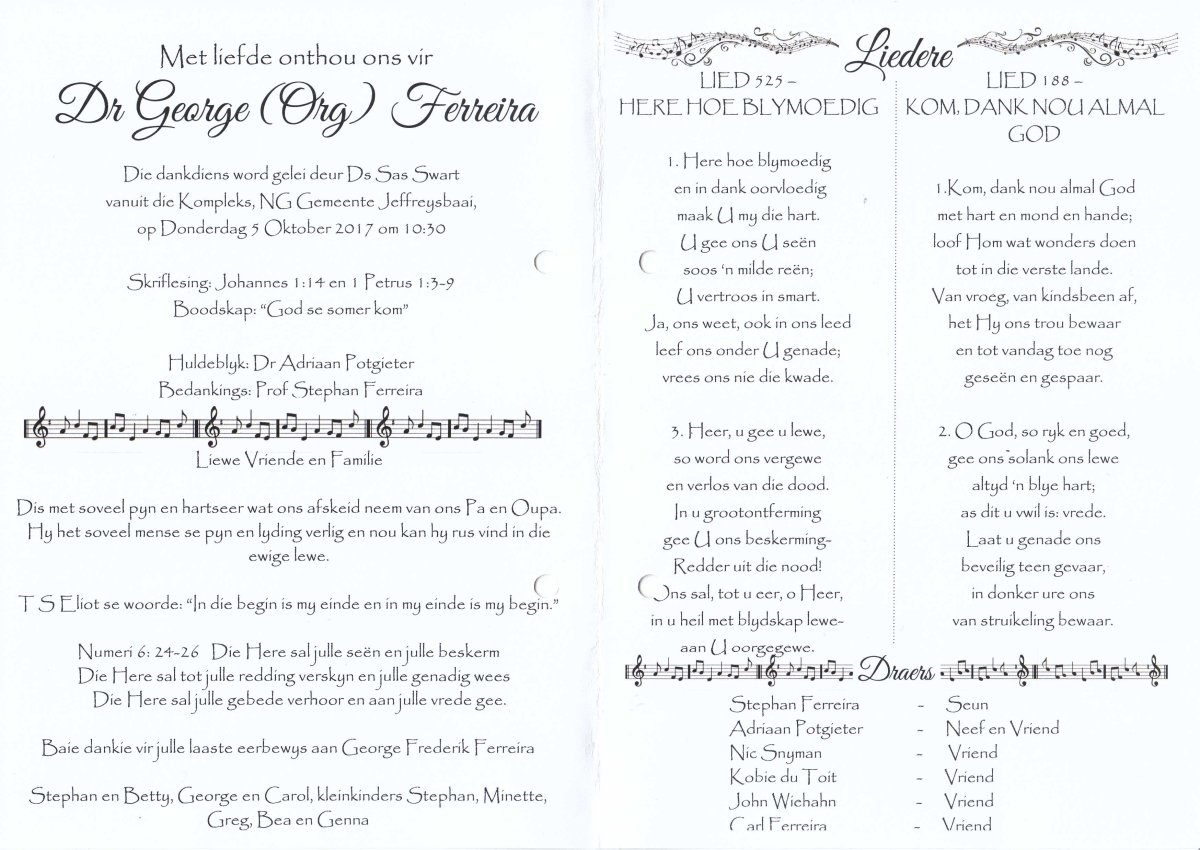 Met liefde onthou ons vir
Dr George (Org) Ferreira
Die dankdiens word gelei deur Ds Sas Swart
vanuit die Kompleks, NG Gemeente Jeffreysbaai,
op Donderdag 5 Oktober 2017 om 10:30
Skriflesing: Johannes 1:14 en 1 Petrus 1:3-9
Boodskap: “God se somer kom”
Huldeblyk: Dr Adriaan Potgieter
Bedankings: Prof Stephan Ferreira
Liewe Vriende en Familie
Dis met soveel pyn en hartseer wat ons afskeid neem van ons Pa en Oupa.
Hy het soveel mense se pyn en lyding verlig en nou kan hy rus vind in die
ewige lewe.
T S Eliot se woorde: “In die begin is my einde en in my einde is my begin.”
Numeri 6: 24-26 Die Here sal julle seën en julle beskerm
Die Here sal tot julle redding verskyn en julle genadig wees
Die Here sal julle gebede verhoor en aan julle vrede gee.
Baie dankie vir julle laaste eerbewys aan George Frederik Ferreira
Stephan en Betty, George en Carol, kleinkinders Stephan, Minette,
Greg, Bea en Genna
Liedere
LIED 525 –
HERE HOE BLYMOEDIG
1. Here hoe blymoedig
en in dank oorvloedig
maak U my die hart.
U gee ons U seën
soos ‘n milde reën;
U vertroos in smart.
Ja, ons weet, ook in ons leed
leef ons onder U genade;
vrees ons nie die kwade.
3. Heer, u gee u lewe,
so word ons vergewe
en verlos van die dood.
In u grootontferming
gee U ons beskerming-
Redder uit die nood!
Ons sal, tot u eer, o Heer,
in u heil met blydskap lewe-
aan U oorgegewe.
LIED 188 –
KOM, DANK NOU ALMAL
GOD
1.Kom, dank nou almal God
met hart en mond en hande;
loof Hom wat wonders doen
tot in die verste lande.
Van vroeg, van kindsbeen af,
het Hy ons trou bewaar
en tot vandag toe nog
geseën en gespaar.
2. O God, so ryk en goed,
gee ons solank ons lewe
altyd ‘n blye hart;
as dit u vwil is: vrede.
Laat u genade ons
beveilig teen gevaar,
in donker ure ons
van struikeling bewaar.
Draers
Stephan Ferreira - Seun
Adriaan Potgieter - Neef en Vriend
Nic Snyman - Vriend
Kobie du Toit - Vriend
John Wiehahn - Vriend
Carl Ferreira - Vriend